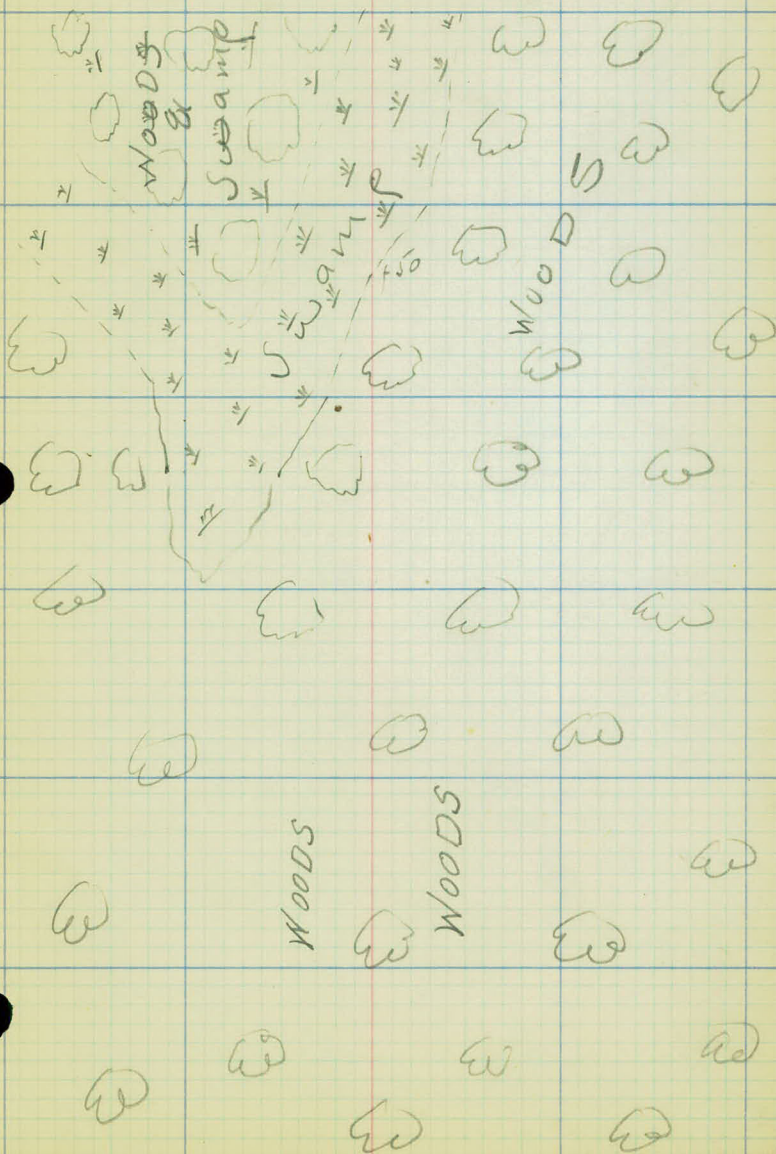 WOODS
&
Swamp
Swamp
+50
WOODS
WOODS
WOODS